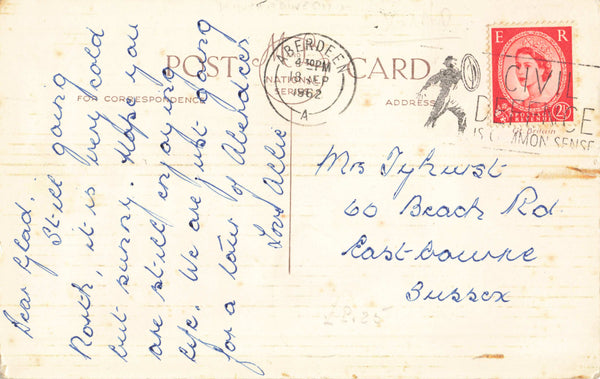 POST CARD
FOR CORRESPONDENCE
ADDRESS
NATION
SERIES
ABERDEEN
4 30PM
18 SEP
1962
A
CIVIL
DEFENCE
IS COMMON SENSE
E R
POSTAGE
REVENUE
2½D
Dear Glad,
Still going
North, it is very cold
but sunny. Hope you
are still enjoying
life. We are just going
for a tour of Aberdeen
Love Allie
Mrs Tyhurst
60 Beach Rd
East-bourne
Sussex
£2.25